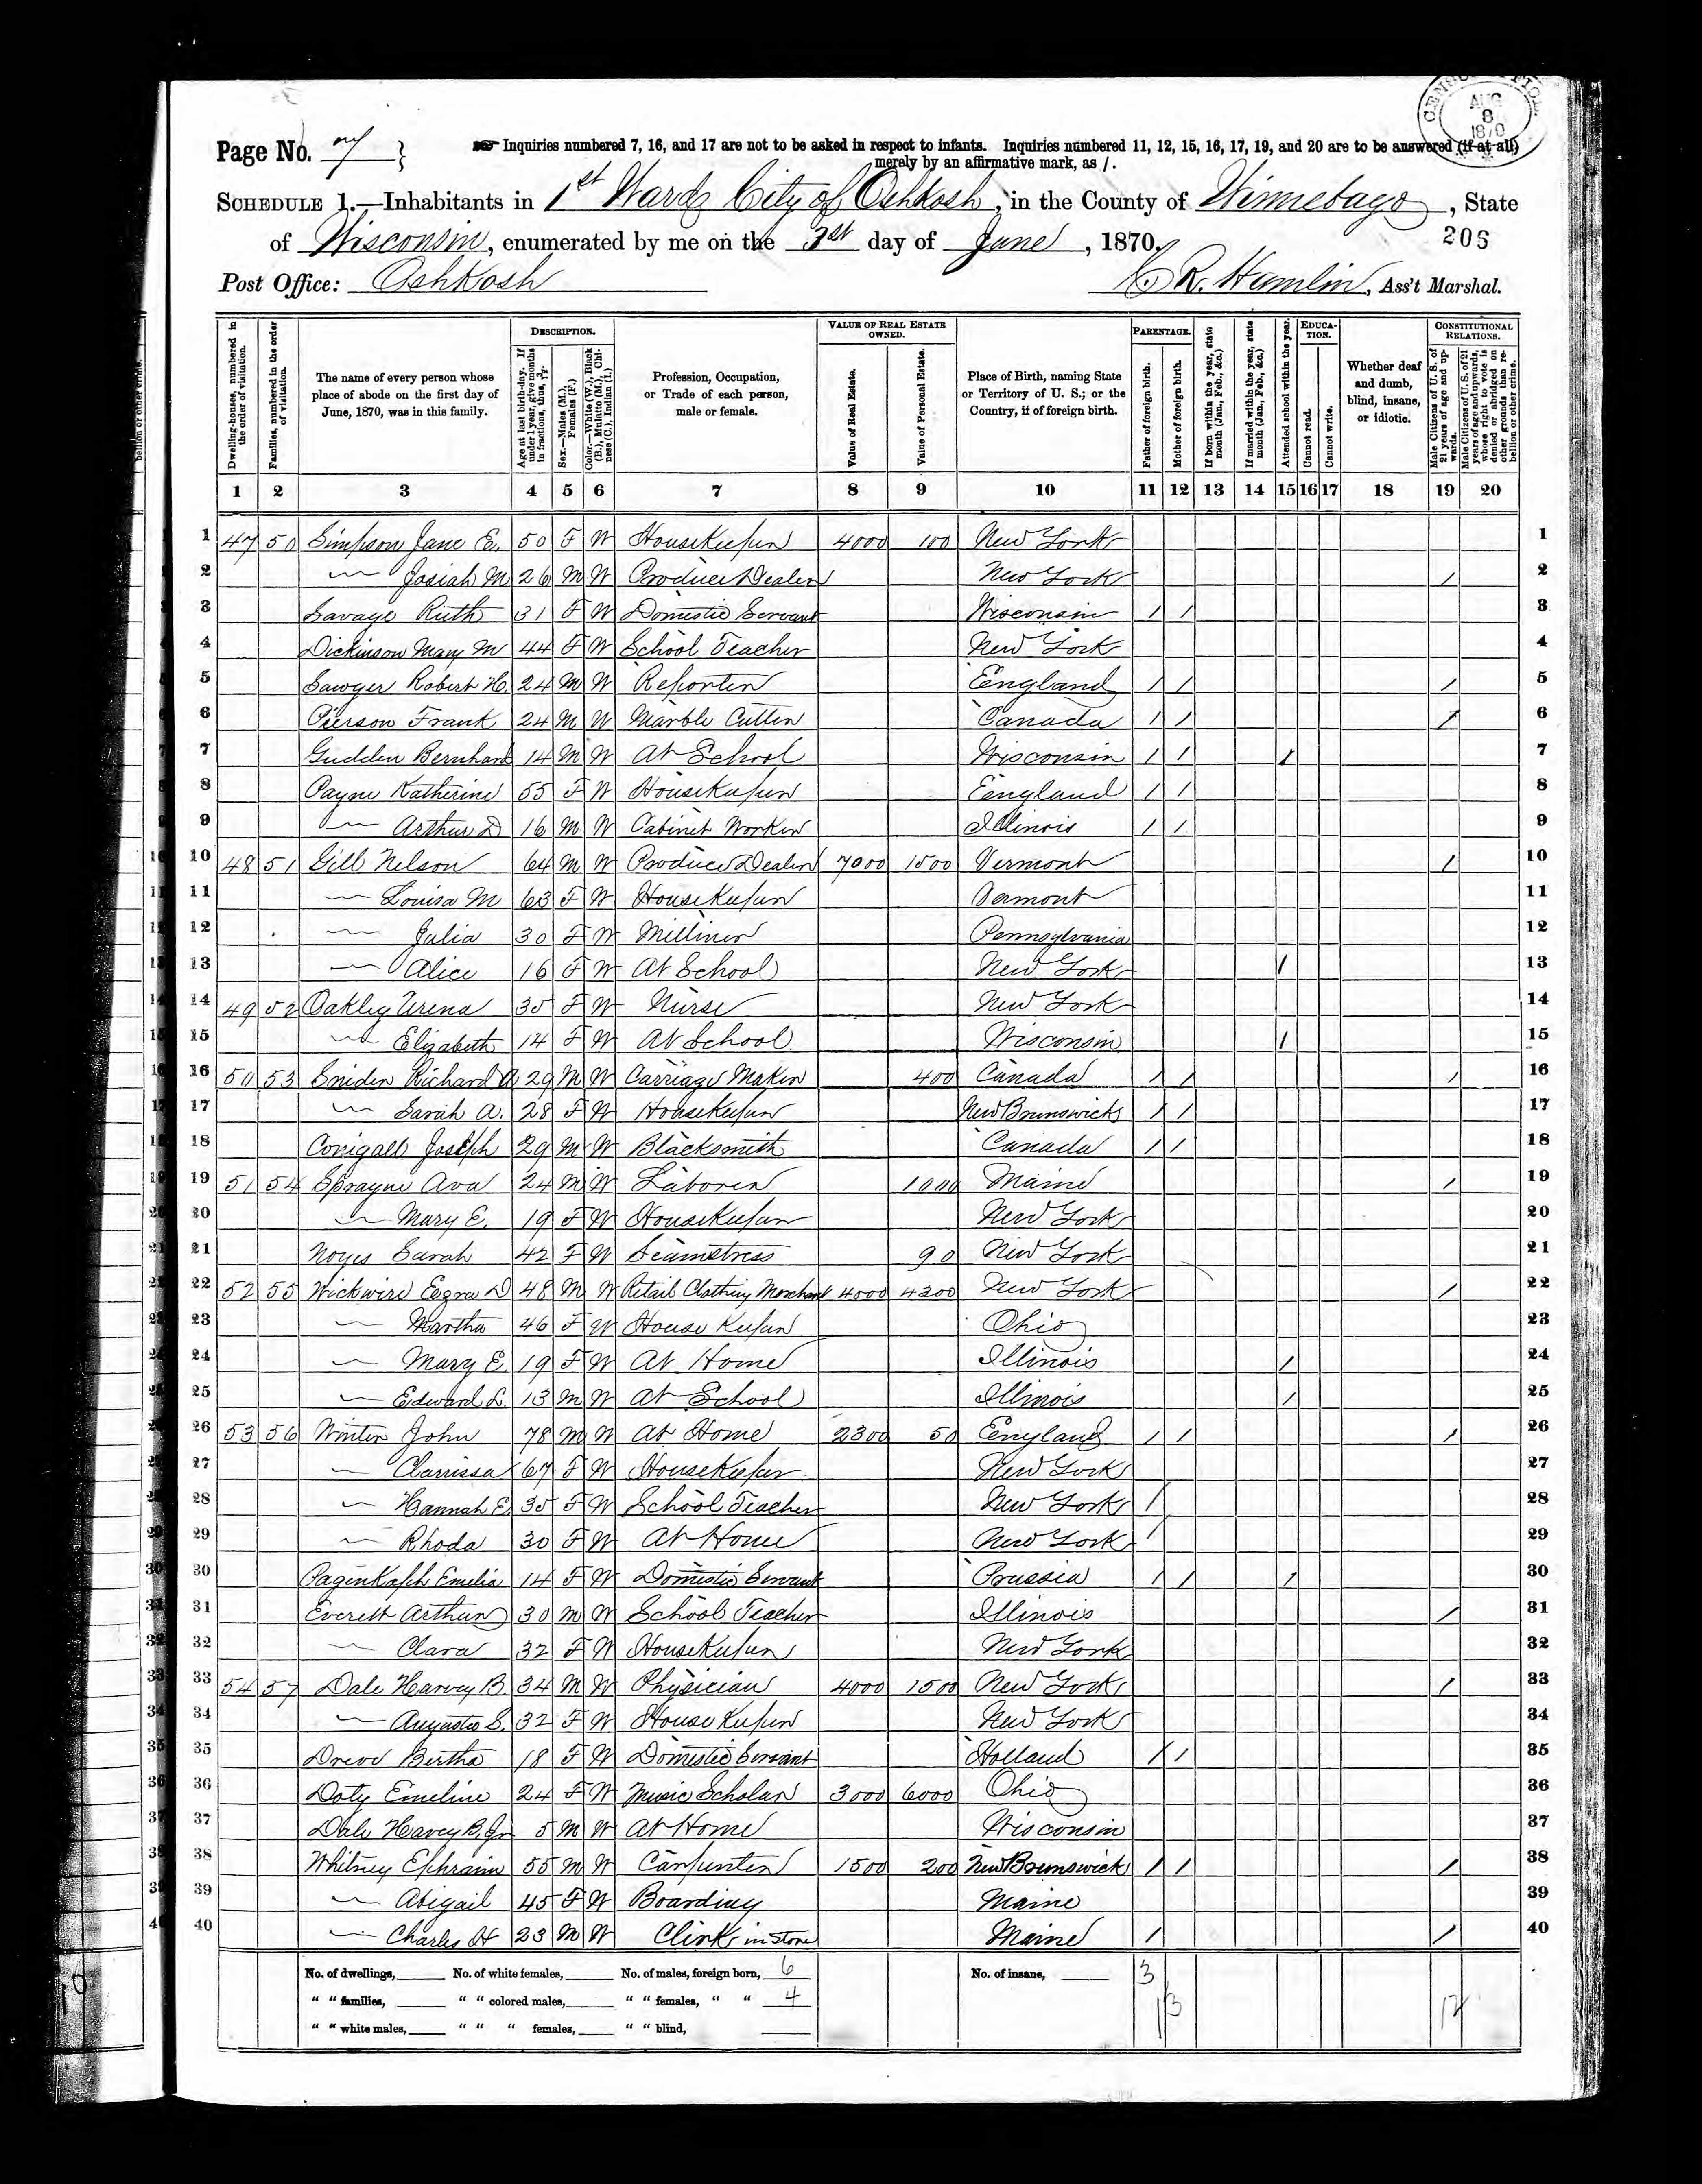 CENSUS OFFICE AUG 8 1870
Page No. 7 }
Inquiries numbered 7, 16, and 17 are not to be asked in respect to infants. Inquiries numbered 11, 12, 15, 16, 17, 19, and 20 are to be answered (if at all)
merely by an affirmative mark, as /.
SCHEDULE 1.—Inhabitants in 1st Ward City of Oshkosh, in the County of Winnebago, State
of Wisconsin, enumerated by me on the 3rd day of June, 1870.
206
Post Office: Oshkosh
R. Hamlin, Ass't Marshal.
Dwelling-houses, numbered in the order of visitation.
Families, numbered in the order of visitation.
The name of every person whose place of abode on the first day of June, 1870, was in this family.
DESCRIPTION.
Age at last birth-day. If under 1 year, give months in fractions, thus, 3/12.
Sex.—Males (M.), Females (F.)
Color.—White (W.), Black (B.), Mulatto (M.), Chinese (C.), Indian (I.)
Profession, Occupation, or Trade of each person, male or female.
VALUE OF REAL ESTATE OWNED.
Value of Real Estate.
Value of Personal Estate.
Place of Birth, naming State or Territory of U. S.; or the Country, if of foreign birth.
PARENTAGE.
Father of foreign birth.
Mother of foreign birth.
If born within the year, state month (Jan., Feb., &c.)
If married within the year, state month (Jan., Feb., &c.)
Attended school within the year.
EDUCATION.
Cannot read.
Cannot write.
Whether deaf and dumb, blind, insane, or idiotic.
CONSTITUTIONAL RELATIONS.
Male Citizens of U. S. of 21 years of age and upwards.
Male Citizens of U. S. of 21 years of age and upwards, whose right to vote is denied or abridged on other grounds than rebellion or other crime.
1 2 3 4 5 6 7 8 9 10 11 12 13 14 15 16 17 18 19 20
1 47 50 Simpson Jane E. 50 F W HouseKeeper 4000 100 New York 1
2 — Josiah M 26 M W Produce Dealer New York / 2
3 Savage Ruth 31 F W Domestic Servant Wisconsin / / 3
4 Dickinson Mary M 44 F W School Teacher New York 4
5 Sawyer Robert H. 24 M W Reporter England / / / 5
6 Pierson Frank 24 M W Marble Cutter Canada / / / 6
7 Gudden Bernhard 14 M W At School Wisconsin / / / 7
8 Payne Katherine 55 F W HouseKeeper England / / 8
9 — Arthur D 16 M W Cabinet Worker Illinois / / 9
10 48 51 Gill Nelson 64 M W Produce Dealer 7000 1500 Vermont / 10
11 — Louisa M 63 F W HouseKeeper Vermont 11
12 — Julia 30 F W Milliner Pennsylvania 12
13 — Alice 16 F W At School New York / 13
14 49 52 Oakley Urena 35 F W Nurse New York 14
15 — Elizabeth 14 F W At School Wisconsin / 15
16 50 53 Snider Richard A 29 M W Carriage Maker 400 Canada / / / 16
17 — Sarah A. 28 F W HouseKeeper New Brunswick / / 17
18 Corrigall Joseph 29 M W Blacksmith Canada / / 18
19 51 54 Sprayne Ava 24 M W Laborer 1000 Maine / 19
20 — Mary E. 19 F W HouseKeeper New York 20
21 Noyes Sarah 42 F W Seamstress 90 New York 21
22 52 55 Wickwire Ezra D 48 M W Retail Clothing Merchant 4000 4300 New York / 22
23 — Martha 46 F W House Keeper Ohio 23
24 — Mary E. 19 F W At Home Illinois / 24
25 — Edward L. 13 M W At School Illinois / 25
26 53 56 Winter John 78 M W At Home 2300 50 England / / / 26
27 — Clarrissa 67 F W HouseKeeper New York 27
28 — Hannah E. 35 F W School Teacher New York / 28
29 — Rhoda 30 F W At Home New York / 29
30 Pagenkoph Emelia 14 F W Domestic Servant Prussia / / / 30
31 Everett Arthur 30 M W School Teacher Illinois / 31
32 — Clara 32 F W HouseKeeper New York 32
33 54 57 Dale Harvey B. 34 M W Physician 4000 1500 New York / 33
34 — Augusta S. 32 F W House Keeper New York 34
35 Bertha 18 F W Domestic Servant Holland / / 35
36 Doty Emeline 24 F W Music Scholar 3000 6000 Ohio 36
37 Dale Harvey B. Jr 5 M W At Home Wisconsin 37
38 Whitney Ephraim 55 M W Carpenter 1500 200 New Brunswick / / / 38
39 — Abigail 45 F W Boarding Maine 39
40 — Charles H 23 M W Clerk in Store Maine / / 40
No. of dwellings, ___ No. of white females, ___ No. of males, foreign born, 6 No. of insane, ___ 3
" " families, ___ " " colored males, ___ " " females, " " 4 13 12
" " white males, ___ " " " females, ___ " " blind, ___